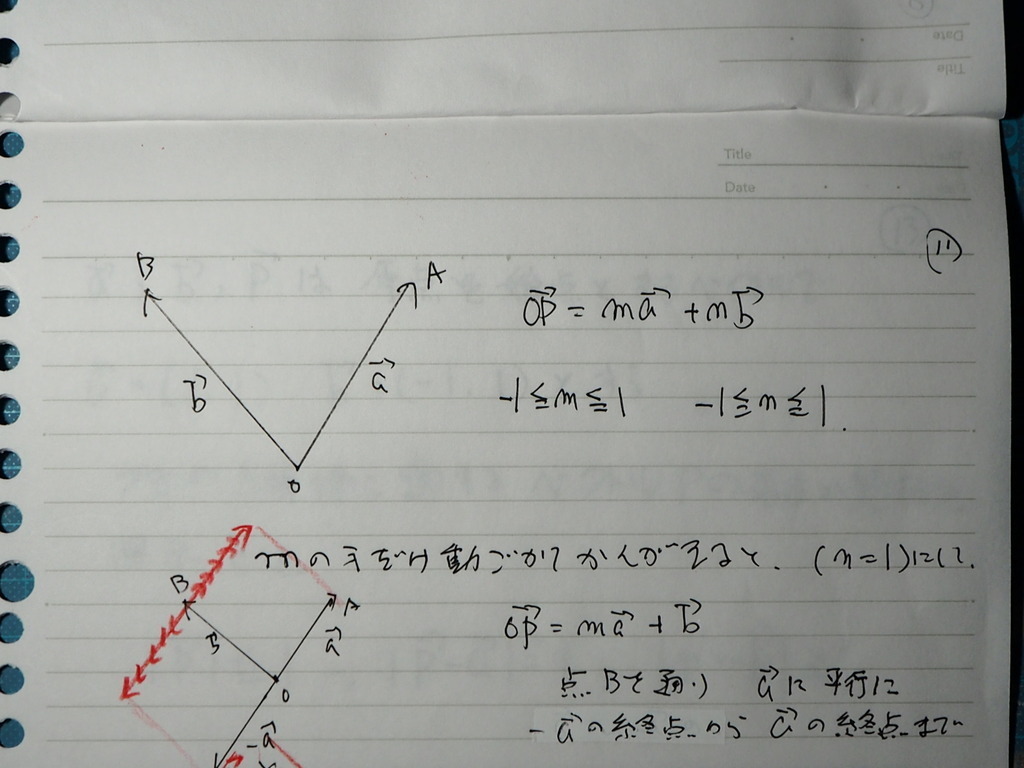 Date
Title
Title
Date
(11)
B
A
OP→ = ma→ + nb→
b→
a→
-1≦m≦1 -1≦n≦1.
O
mの方だけ動ごかてかんがえると. (n=1)にして.
B
A
OP→ = ma→ + b→
b→
a→
O
点Bを通り a→に平行に
-a→
-a→の終点から a→の終点まで